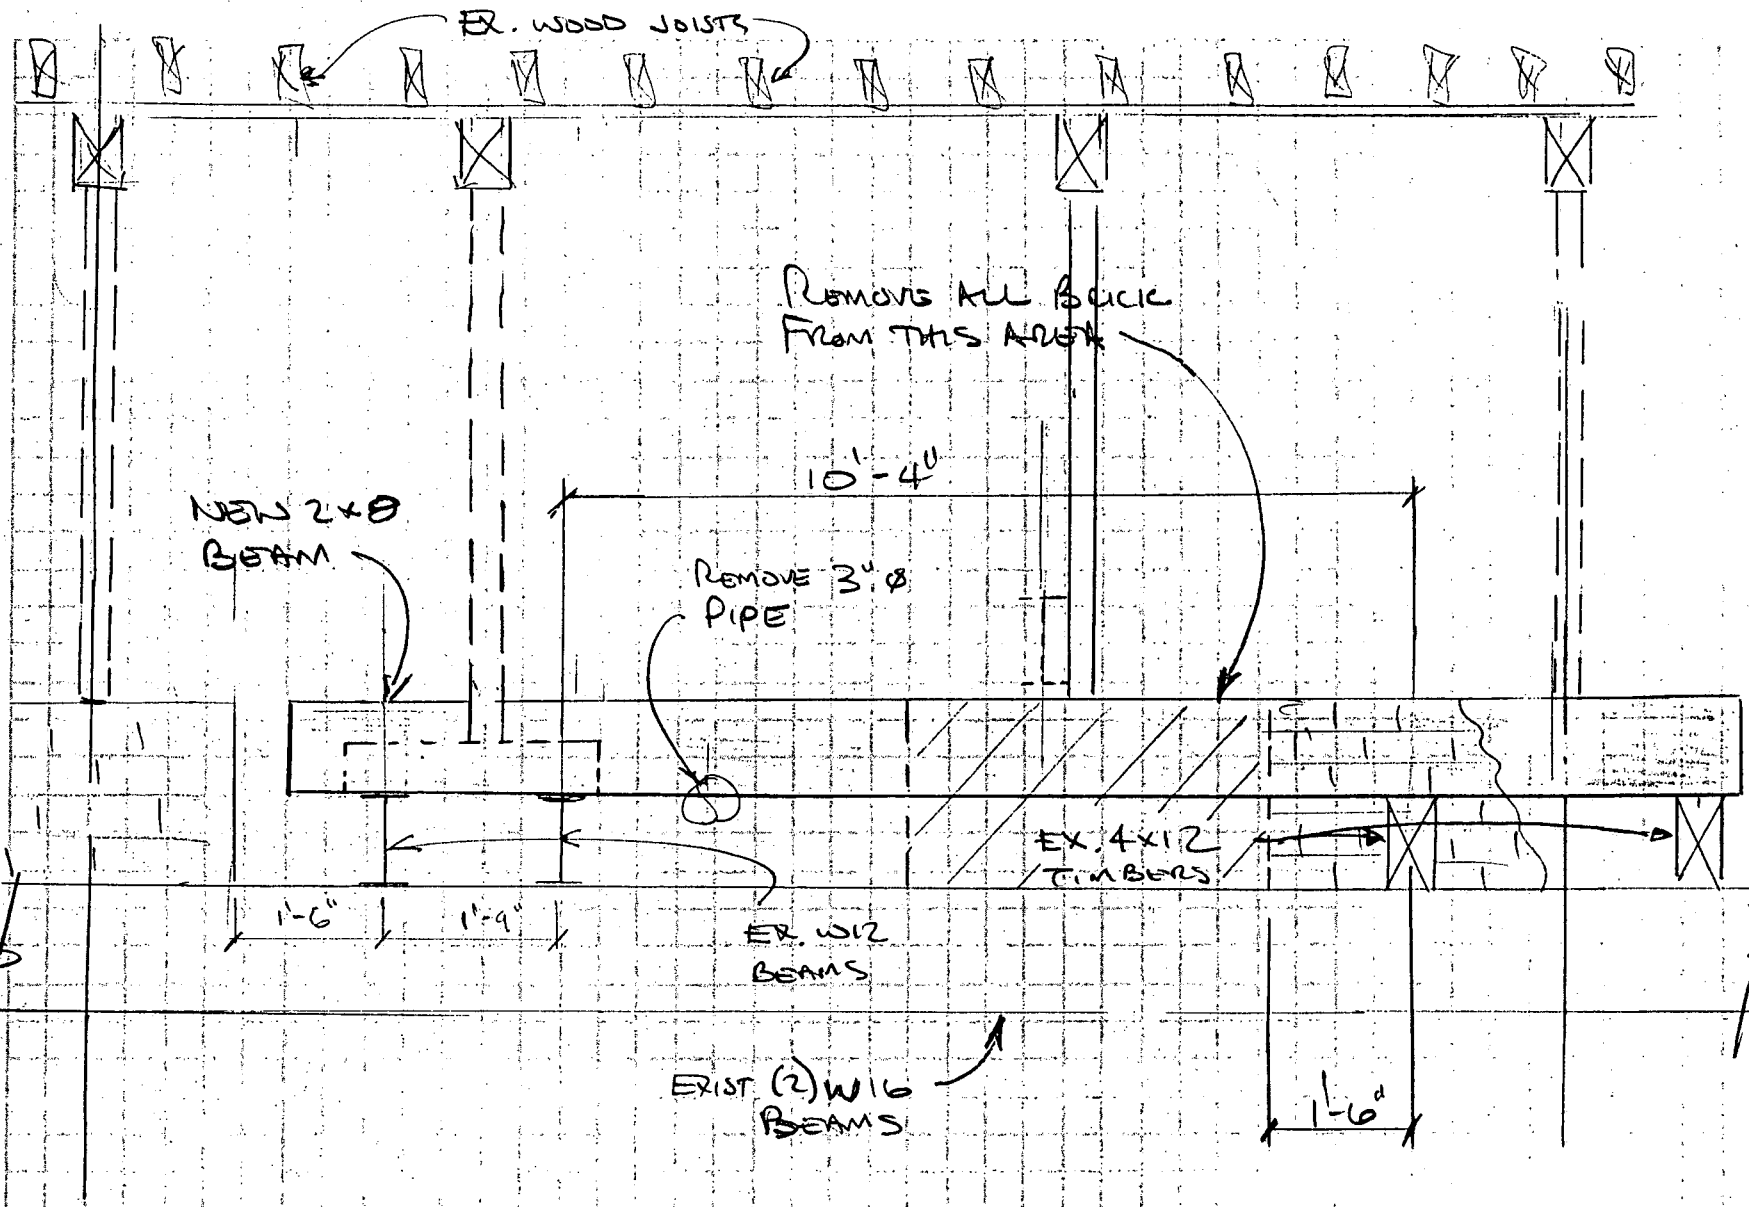 EX. WOOD JOISTS
REMOVE ALL BRICK
FROM THIS AREA
10'-4"
NEW 2x8
BEAM
REMOVE 3"ø
PIPE
EX. 4x12
TIMBERS
1'-6"
1'-9"
EX. W12
BEAMS
EXIST (2) W16
BEAMS
1'-6"